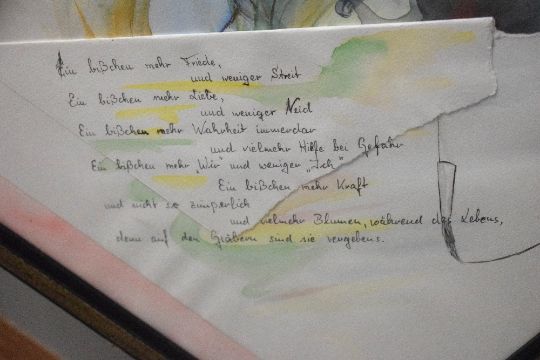 Ein bißchen mehr Friede,
und weniger Streit
Ein bißchen mehr Liebe,
und weniger Neid
Ein bißchen mehr Wahrheit immerdar
und vielmehr Hilfe bei Gefahr
Ein bißchen mehr „Wir" und weniger „Ich"
Ein bißchen mehr Kraft
und nicht so zimperlich
und vielmehr Blumen, während des Lebens,
denn auf den Gräbern sind sie vergebens.